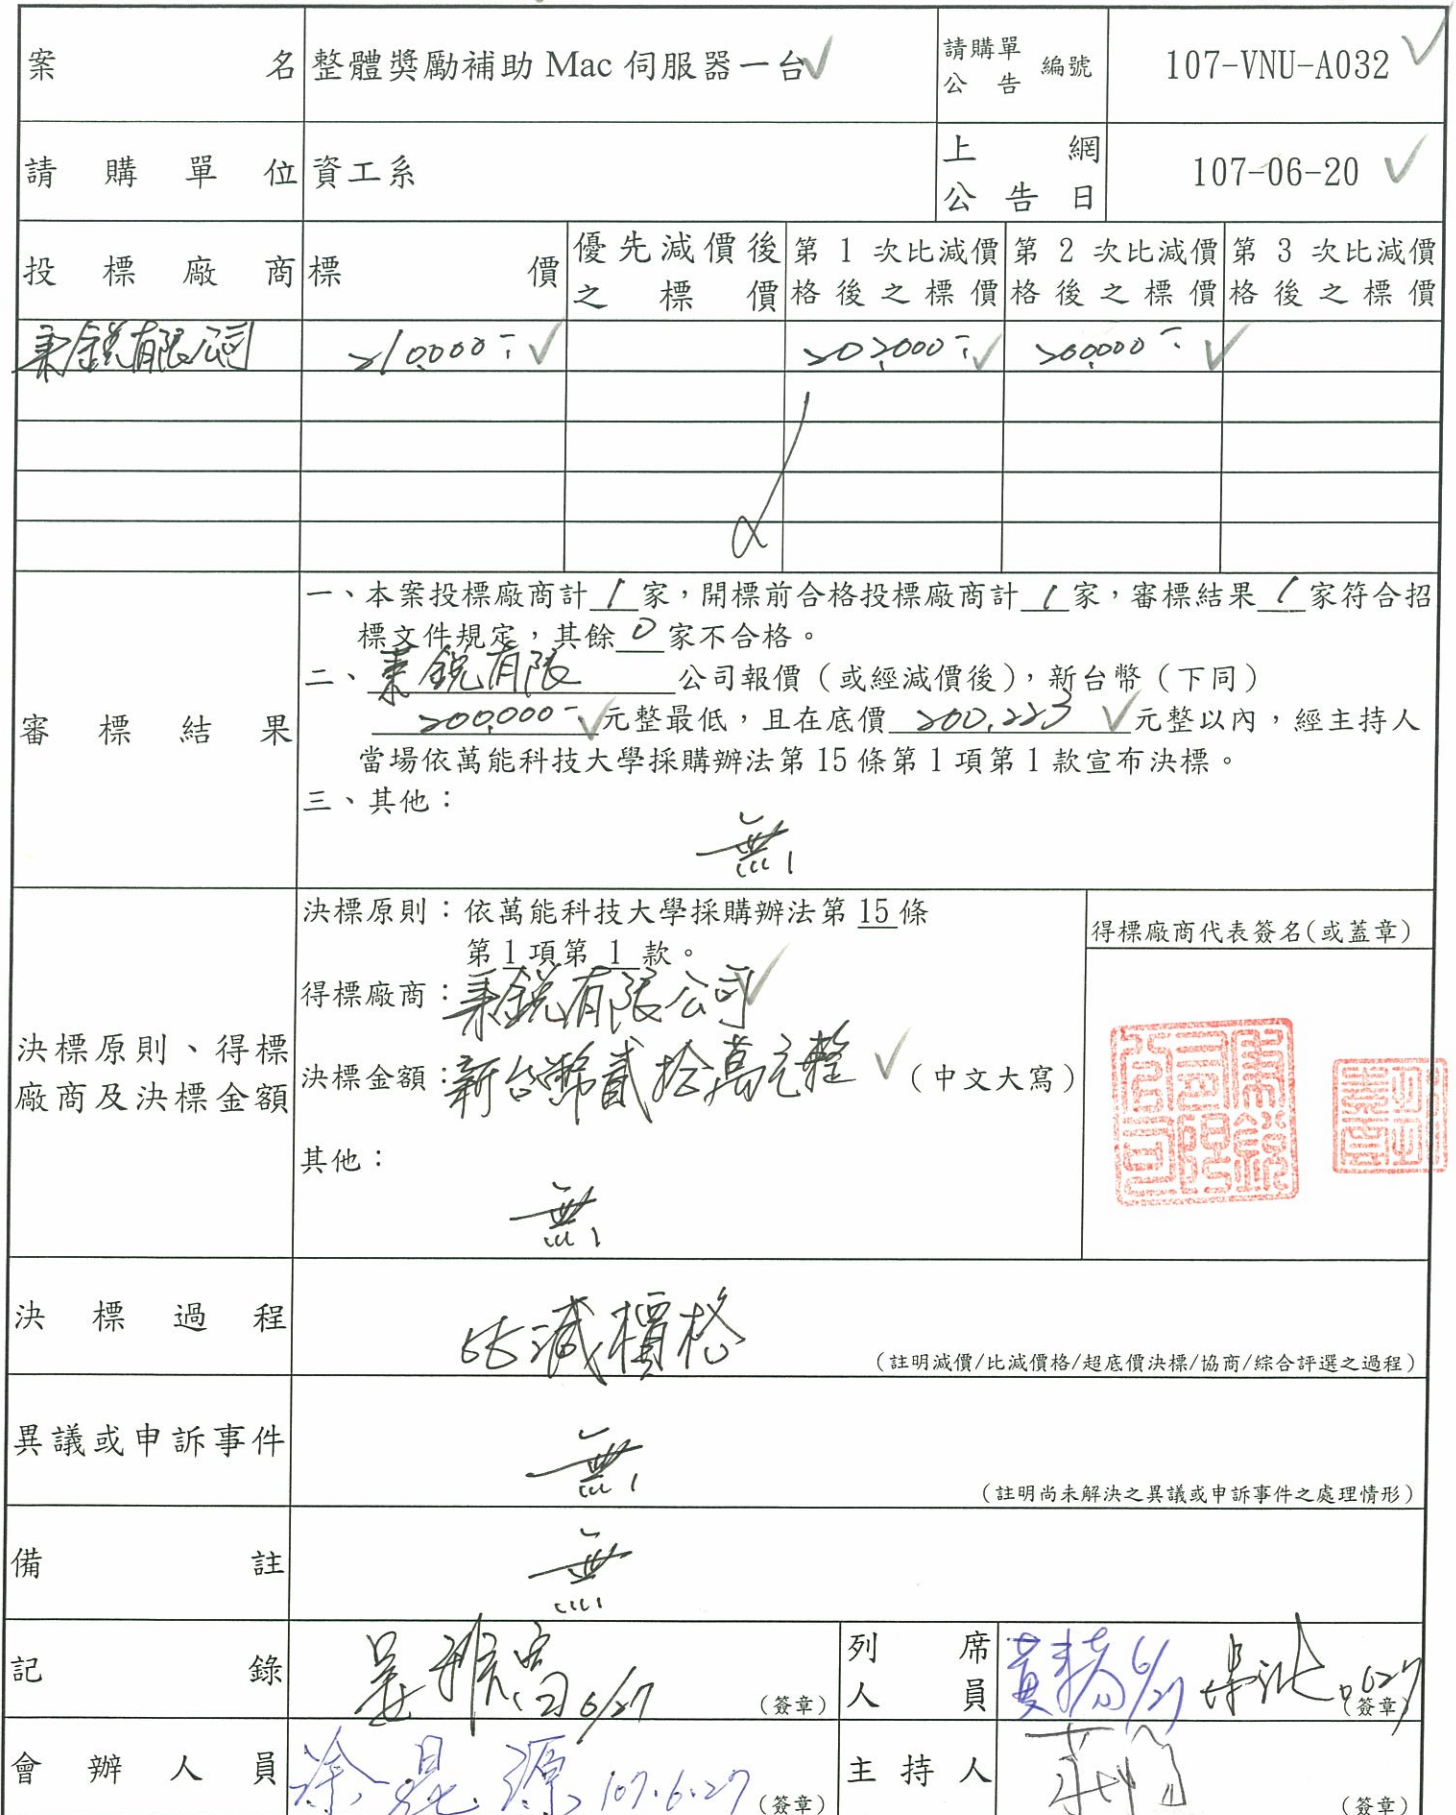 案名 整體獎勵補助 Mac 伺服器一台 請購單公告 編號 107-VNU-A032
請購單位 資工系 上網公告日 107-06-20
投標廠商 標價 優先減價後之標價 第 1 次比減價格後之標價 第 2 次比減價格後之標價 第 3 次比減價格後之標價
秉銳有限公司 210,000 202,000 200,000
審標結果
一、本案投標廠商計 1 家，開標前合格投標廠商計 1 家，審標結果 1 家符合招
標文件規定，其餘 0 家不合格。
二、秉銳有限 公司報價（或經減價後），新台幣（下同）
200,000 元整最低，且在底價 200,223 元整以內，經主持人
當場依萬能科技大學採購辦法第 15 條第 1 項第 1 款宣布決標。
三、其他：
無
決標原則、得標
廠商及決標金額
決標原則：依萬能科技大學採購辦法第 15 條
第 1 項第 1 款。
得標廠商：秉銳有限公司
決標金額：新台幣貳拾萬元整 （中文大寫）
其他：
無
得標廠商代表簽名(或蓋章)
決標過程 比減價格
（註明減價/比減價格/超底價決標/協商/綜合評選之過程）
異議或申訴事件 無
（註明尚未解決之異議或申訴事件之處理情形）
備註 無
記錄 6/27 （簽章） 列席人員 6/27 0627 （簽章）
會辦人員 107.6.27 （簽章） 主持人 （簽章）